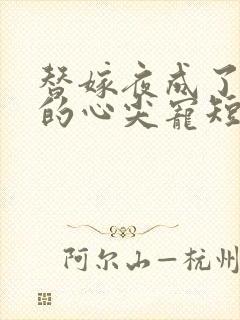 替嫁夜成了
的心尖宠短
阿尔山—杭州